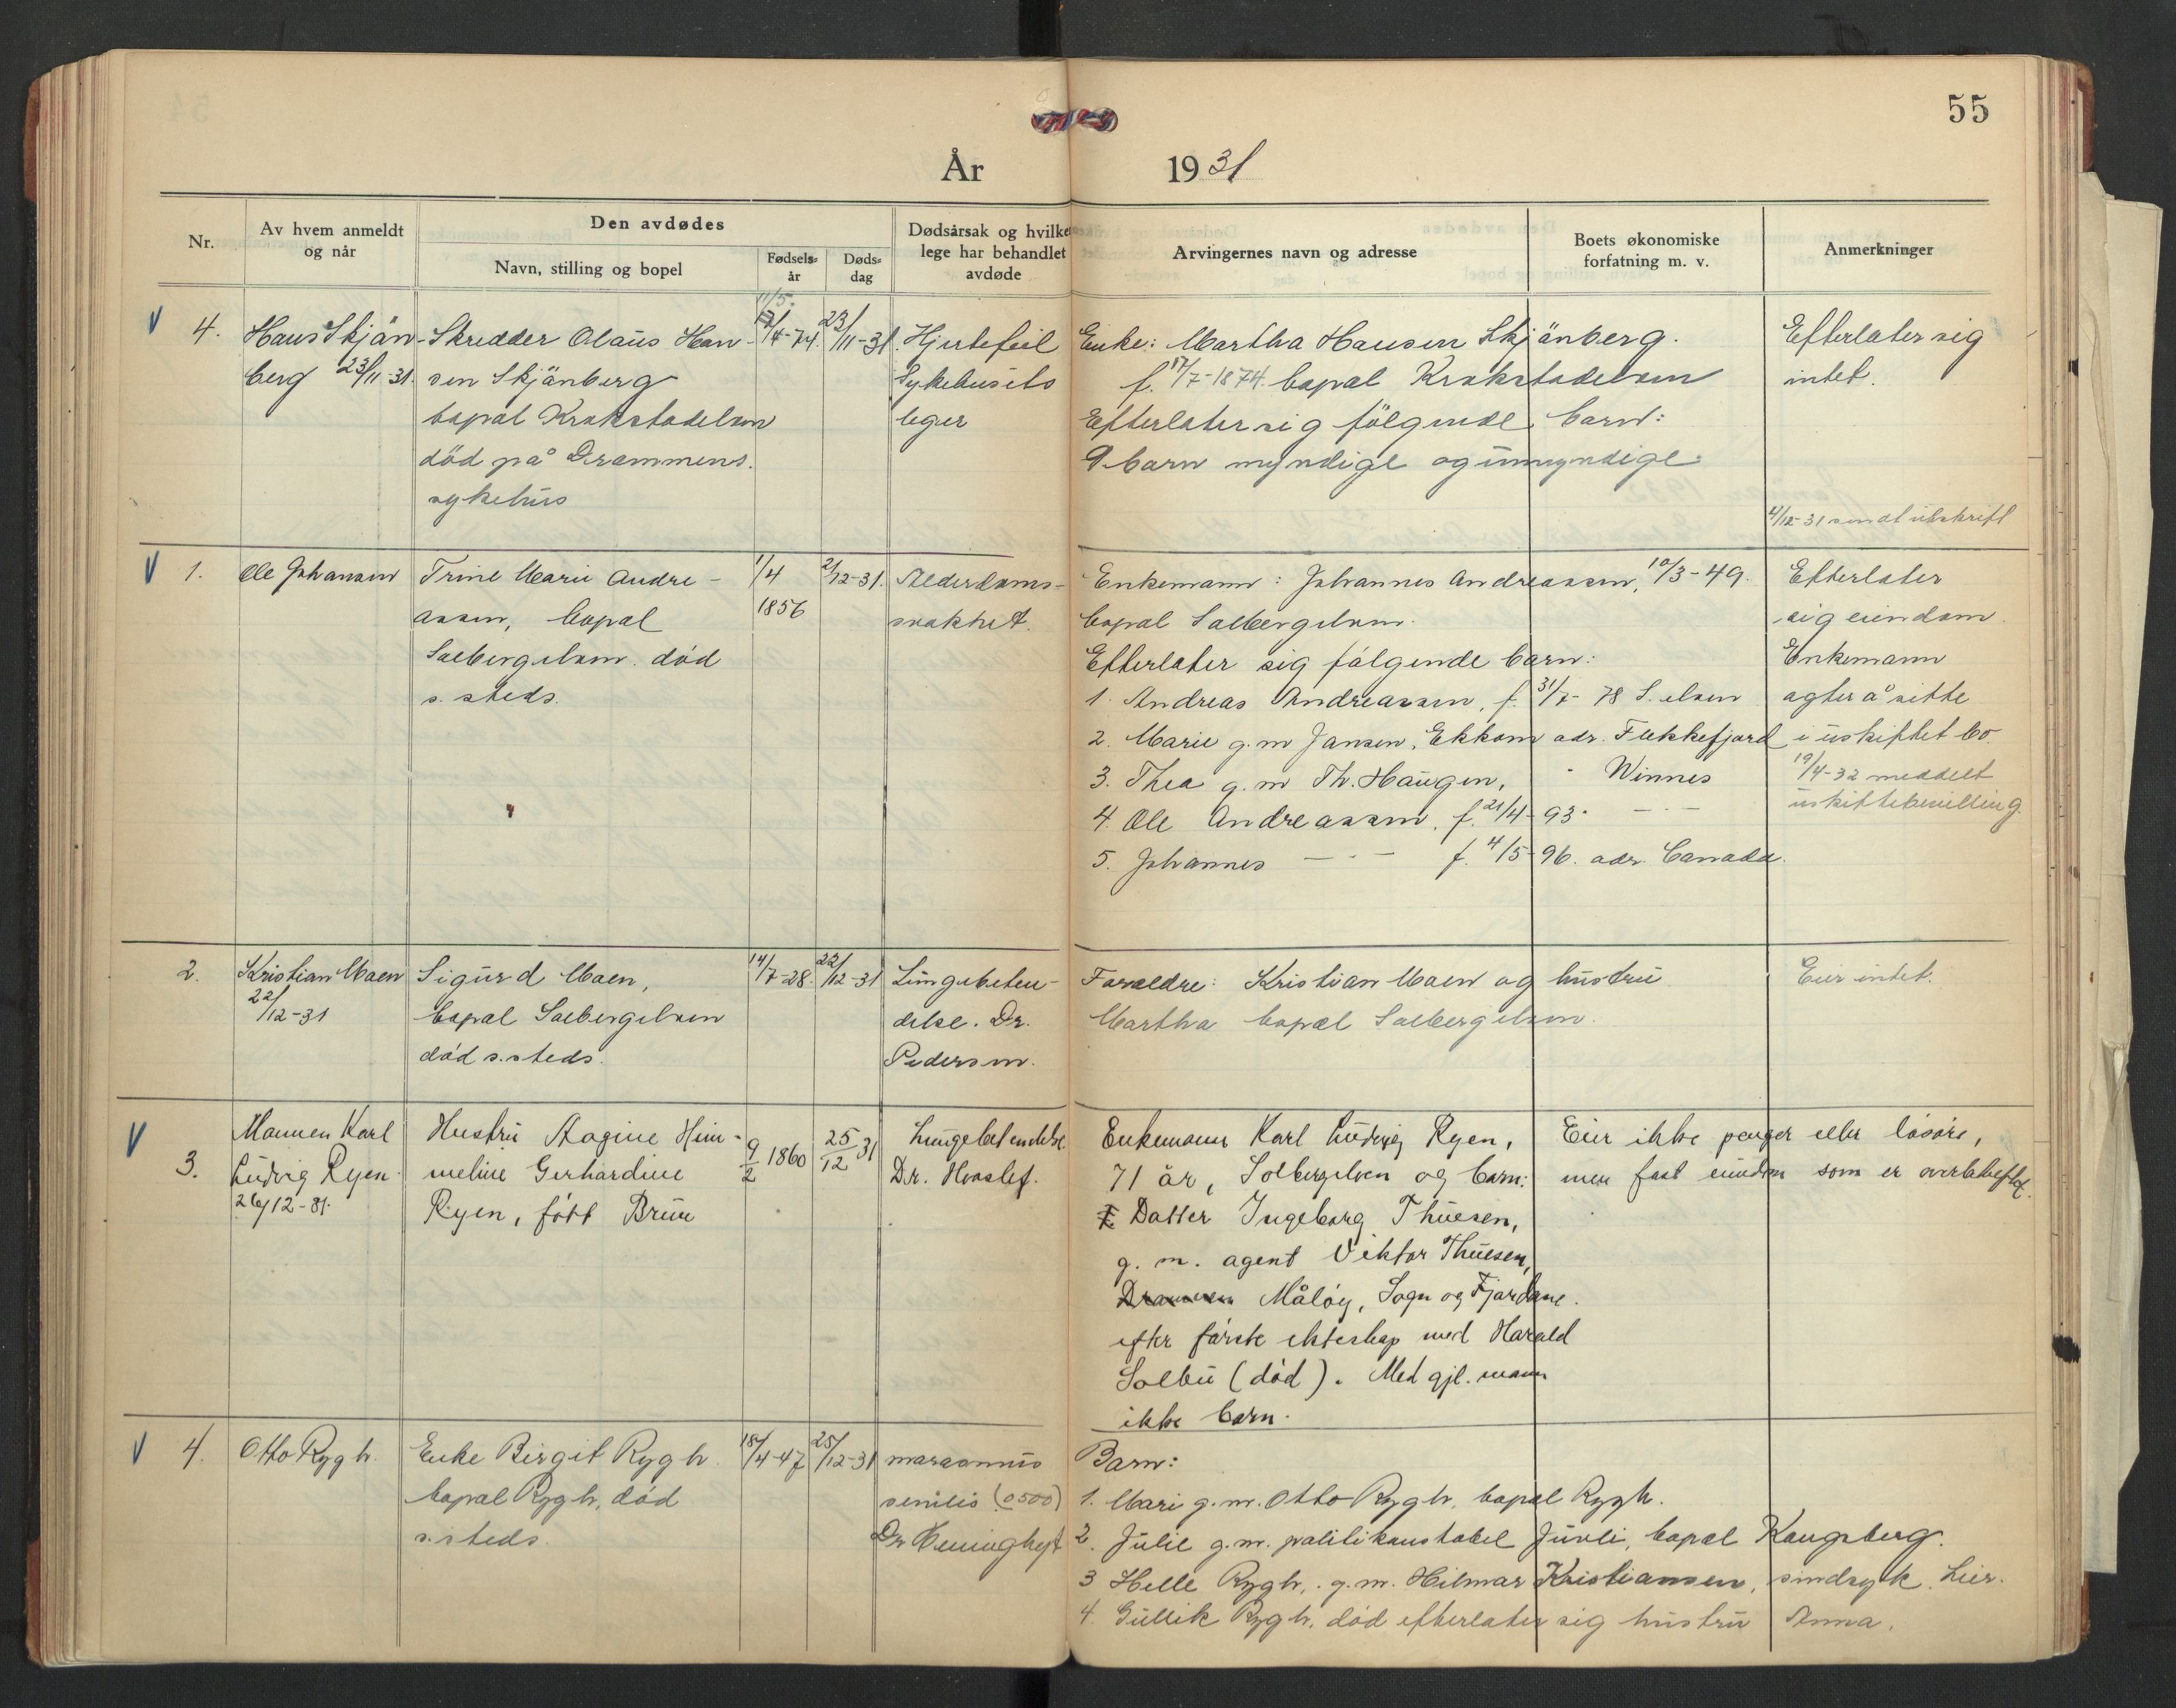 55
År 1931
Nr.
Av hvem anmeldt
og når
Den avdødes
Navn, stilling og bopel
Fødsels-
år
Døds-
dag
Dødsårsak og hvilke
lege har behandlet
avdøde
Arvingernes navn og adresse
Boets økonomiske
forfatning m. v.
Anmerkninger
V 4.
Hans Skjän-
berg 23/11-31.
Skredder Olaus Han-
sen Skjänberg
bopal Krokstadelven
död på Drammens.
sykehus
11/5-
4-74.
23/11-31.
Hjertefeil
Sykehusets
leger
Enke: Martha Hansen Skjänberg.
f. 17/7-1874. bopal Krokstadelven
Efterlater sig fölgende barn:
9 barn myndige og umyndige
Efterlater sig
intet.
4/12-31 sendt utskrift
V 1.
Ole Johansen
Trine Marie Andre-
assen, bopal
Solbergelven. död
s. steds.
1/4
1856
2/12-31.
Alderdoms-
svakhet.
Enkemann: Johannes Andreassen, 10/3-49.
bopal Solbergelven.
Efterlater sig fölgende barn:
1. Andreas Andreassen, f. 31/7-78 S. elven
2. Marie g.m Jansen, Ekkom adr. Flekkefjord
3. Thea g. m Th. Haugen, " Winnes
4. Ole Andreassen, f. 21/4-93. — " —
5. Johannes — " — f. 4/5-96. adr. Canada.
Efterlater
sig eiendom.
Enkemann
agter å sitte
i uskiftet bo.
19/4-32 meddelt
uskiftebevilling.
2.
Kristian Moen
22/12-31
Sigurd Moen,
bopal Solbergelven
död s. steds.
14/7-28.
22/12-31
Lungebeten-
delse. Dr.
Pedersen.
Foraeldre: Kristian Moen og hustru
Martha bopæl Solbergelven.
Eier intet.
V 3.
Mannen Karl
Ludvig Ryen.
26/12-31.
Hustru Aagine Him-
meline Gerhardine
Ryen, fött Brun
9/2 1860
25/12 31
Lungebetendelse
Dr. Hvoslef.
Enkemann Karl Ludvig Ryen,
71 år, Solbergelven og barn:
Datter Ingeborg Thuesen,
g. m. agent Viktor Thuesen,
Drammen Målöy, Sogn og Fjordane.
efter förste ekteskap med Harald
Solbu (död). Med gjl. mann
ikke barn.
Eier ikke penger eller lösöre,
men fast eiendom som er overbeheftet.
V 4.
Otto Rygh.
Enke Birgit Rygh.
bopal Rygh, död
s. steds.
18/4-47
25/12-31
marasmus
senilis (0500)
Dr
Barn:
1. Mari g.m. Otto Rygh, bopæl Rygh.
2. Julie g.m. politikonstabel Juvli, bopæl Kongsberg.
3 Helle Rygh, g.m. Hilmar Kristiansen, sindsyk. Lier.
4. Gullik Rygh, död efterlater sig hustru Anna.